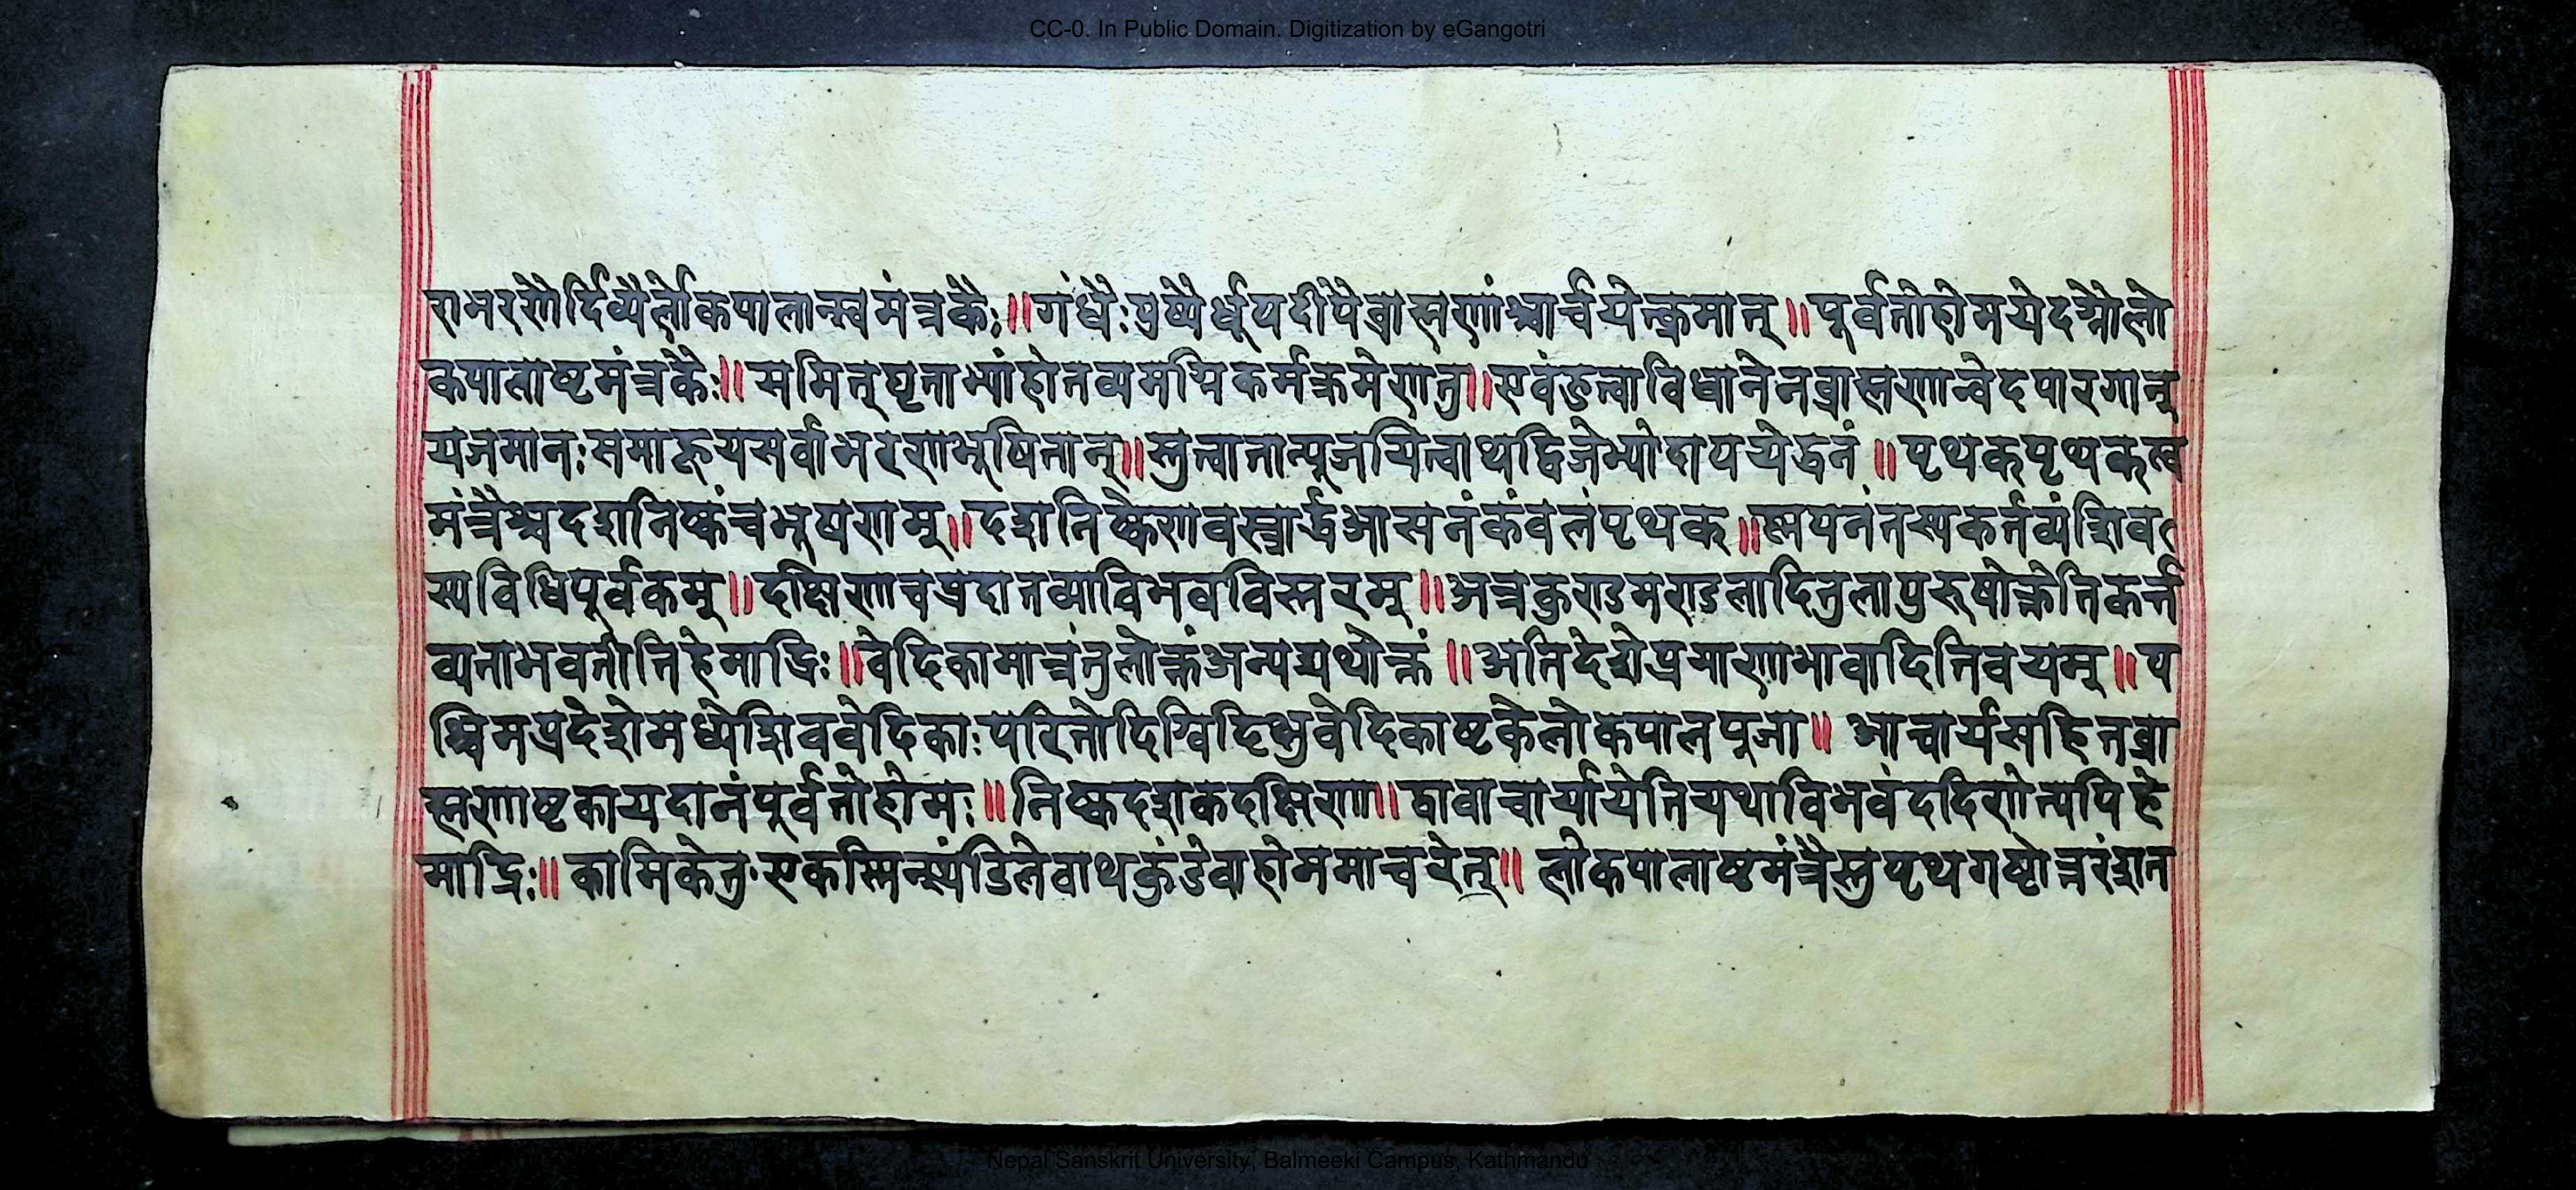 CC-0. In Public Domain. Digitization by eGangotri
राभरणैर्दिव्यैर्लोकपालान्स्वमंत्रकैः॥गंधैःपुष्पैर्धूपदीपैब्राह्मणांश्चार्चयेन्क्रमात्॥पूर्वतोहोमयेदग्नौलो
कपालाष्टमंत्रकैः॥समित्घृताभ्यांहोतव्यमग्निकर्मक्रमेणतु॥एवंहुत्वाविधानेनब्राह्मणान्वेदपारगान्
यजमानःसमाहूयसर्वाभरणभुषितान्॥स्तुत्वातान्पूजयित्वाथद्विजेभ्योदापयेद्धनं॥पृथक्पृथक्त्व
मंत्रैश्चदशनिष्कंचभूषणम्॥दशनिष्केणवस्त्रार्द्धआसनंकंवलंपृथक्॥स्नपनंतस्यकर्तव्यंशिव
स्यविधिपूर्वकम्॥दक्षिणाचप्रदातव्याविभवविस्तरम्॥अत्रकुण्डमण्डलादितुलापुरुषोक्तेतिकर्त्त
व्यताभवतीतिहेमाद्रिः॥वेदिकामात्रंतुलोक्तंअन्यद्यथोक्तं॥अतिदेशेप्रमाणाभावादितिवयम्॥प
श्चिमप्रदेशेमध्येशिववेदिकाःपरितोदिग्विदिक्षुवेदिकाष्टकेलोकपालपूजा॥आचार्यसहितब्रा
ह्मणाष्टकायदानंपूर्वतोहोमः॥निष्कदशकदक्षिणा॥द्वावाचार्यायेतियथाविभवंददिणेत्यपिहे
माद्रिः॥कामिकेतु·एकस्मिन्स्थंडिलेवाथकुंडेवाहोममाचरेत्॥लोकपालाष्टमंत्रैस्तुपृथगष्टोत्तरंशत
Nepal Sanskrit University, Balmeeki Campus, Kathmandu